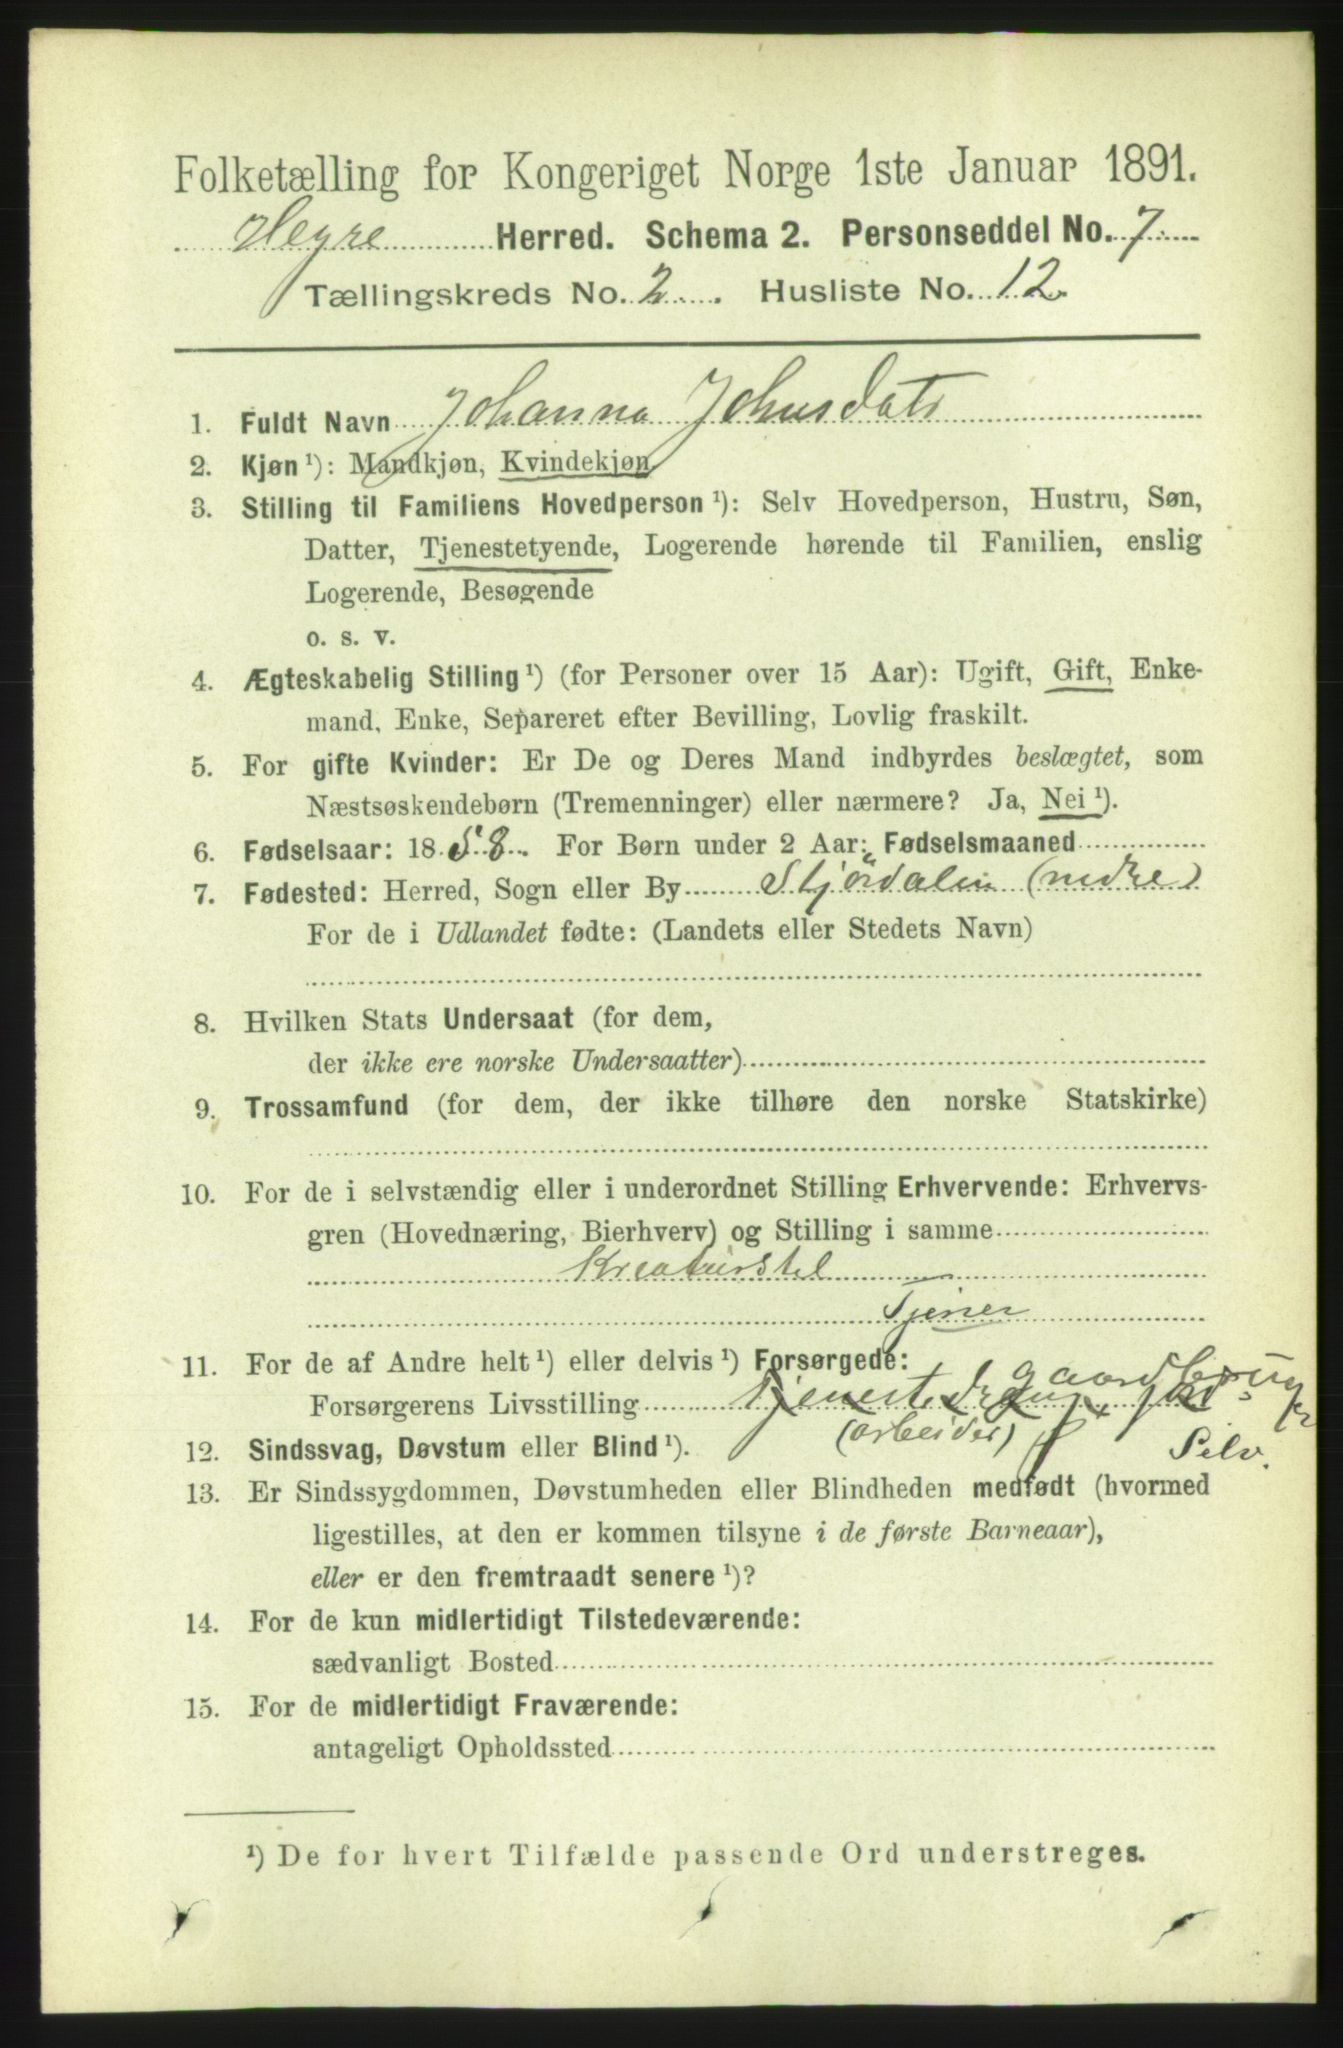 Folketælling for Kongeriget Norge 1ste Januar 1891.
Hegre Herred. Schema 2. Personseddel No. 7
Tællingskreds No. 2. Husliste No. 12
1. Fuldt Navn Johanna Johnsdatr
2. Kjøn ¹): Mandkjøn, Kvindekjøn
3. Stilling til Familiens Hovedperson ¹): Selv Hovedperson, Hustru, Søn,
Datter, Tjenestetyende, Logerende hørende til Familien, enslig
Logerende, Besøgende
o. s. v.
4. Ægteskabelig Stilling ¹) (for Personer over 15 Aar): Ugift, Gift, Enke-
mand, Enke, Separeret efter Bevilling, Lovlig fraskilt.
5. For gifte Kvinder: Er De og Deres Mand indbyrdes beslægtet, som
Næstsøskendebørn (Tremenninger) eller nærmere? Ja, Nei ¹).
6. Fødselsaar: 18 58. For Børn under 2 Aar: Fødselsmaaned
7. Fødested: Herred, Sogn eller By Stjördalen (nedre)
For de i Udlandet fødte: (Landets eller Stedets Navn)
8. Hvilken Stats Undersaat (for dem,
der ikke ere norske Undersaatter)
9. Trossamfund (for dem, der ikke tilhøre den norske Statskirke)
10. For de i selvstændig eller i underordnet Stilling Erhvervende: Erhvervs-
gren (Hovednæring, Bierhverv) og Stilling i samme
Kreaturstel
Tjener
11. For de af Andre helt ¹) eller delvis ¹) Forsørgede:
gaardbruger
Forsørgerens Livsstilling
(arbeider) Selv.
12. Sindssvag, Døvstum eller Blind ¹).
13. Er Sindssygdommen, Døvstumheden eller Blindheden medfødt (hvormed
ligestilles, at den er kommen tilsyne i de første Barneaar),
eller er den fremtraadt senere ¹)?
14. For de kun midlertidigt Tilstedeværende:
sædvanligt Bosted
15. For de midlertidigt Fraværende:
antageligt Opholdssted
¹) De for hvert Tilfælde passende Ord understreges.